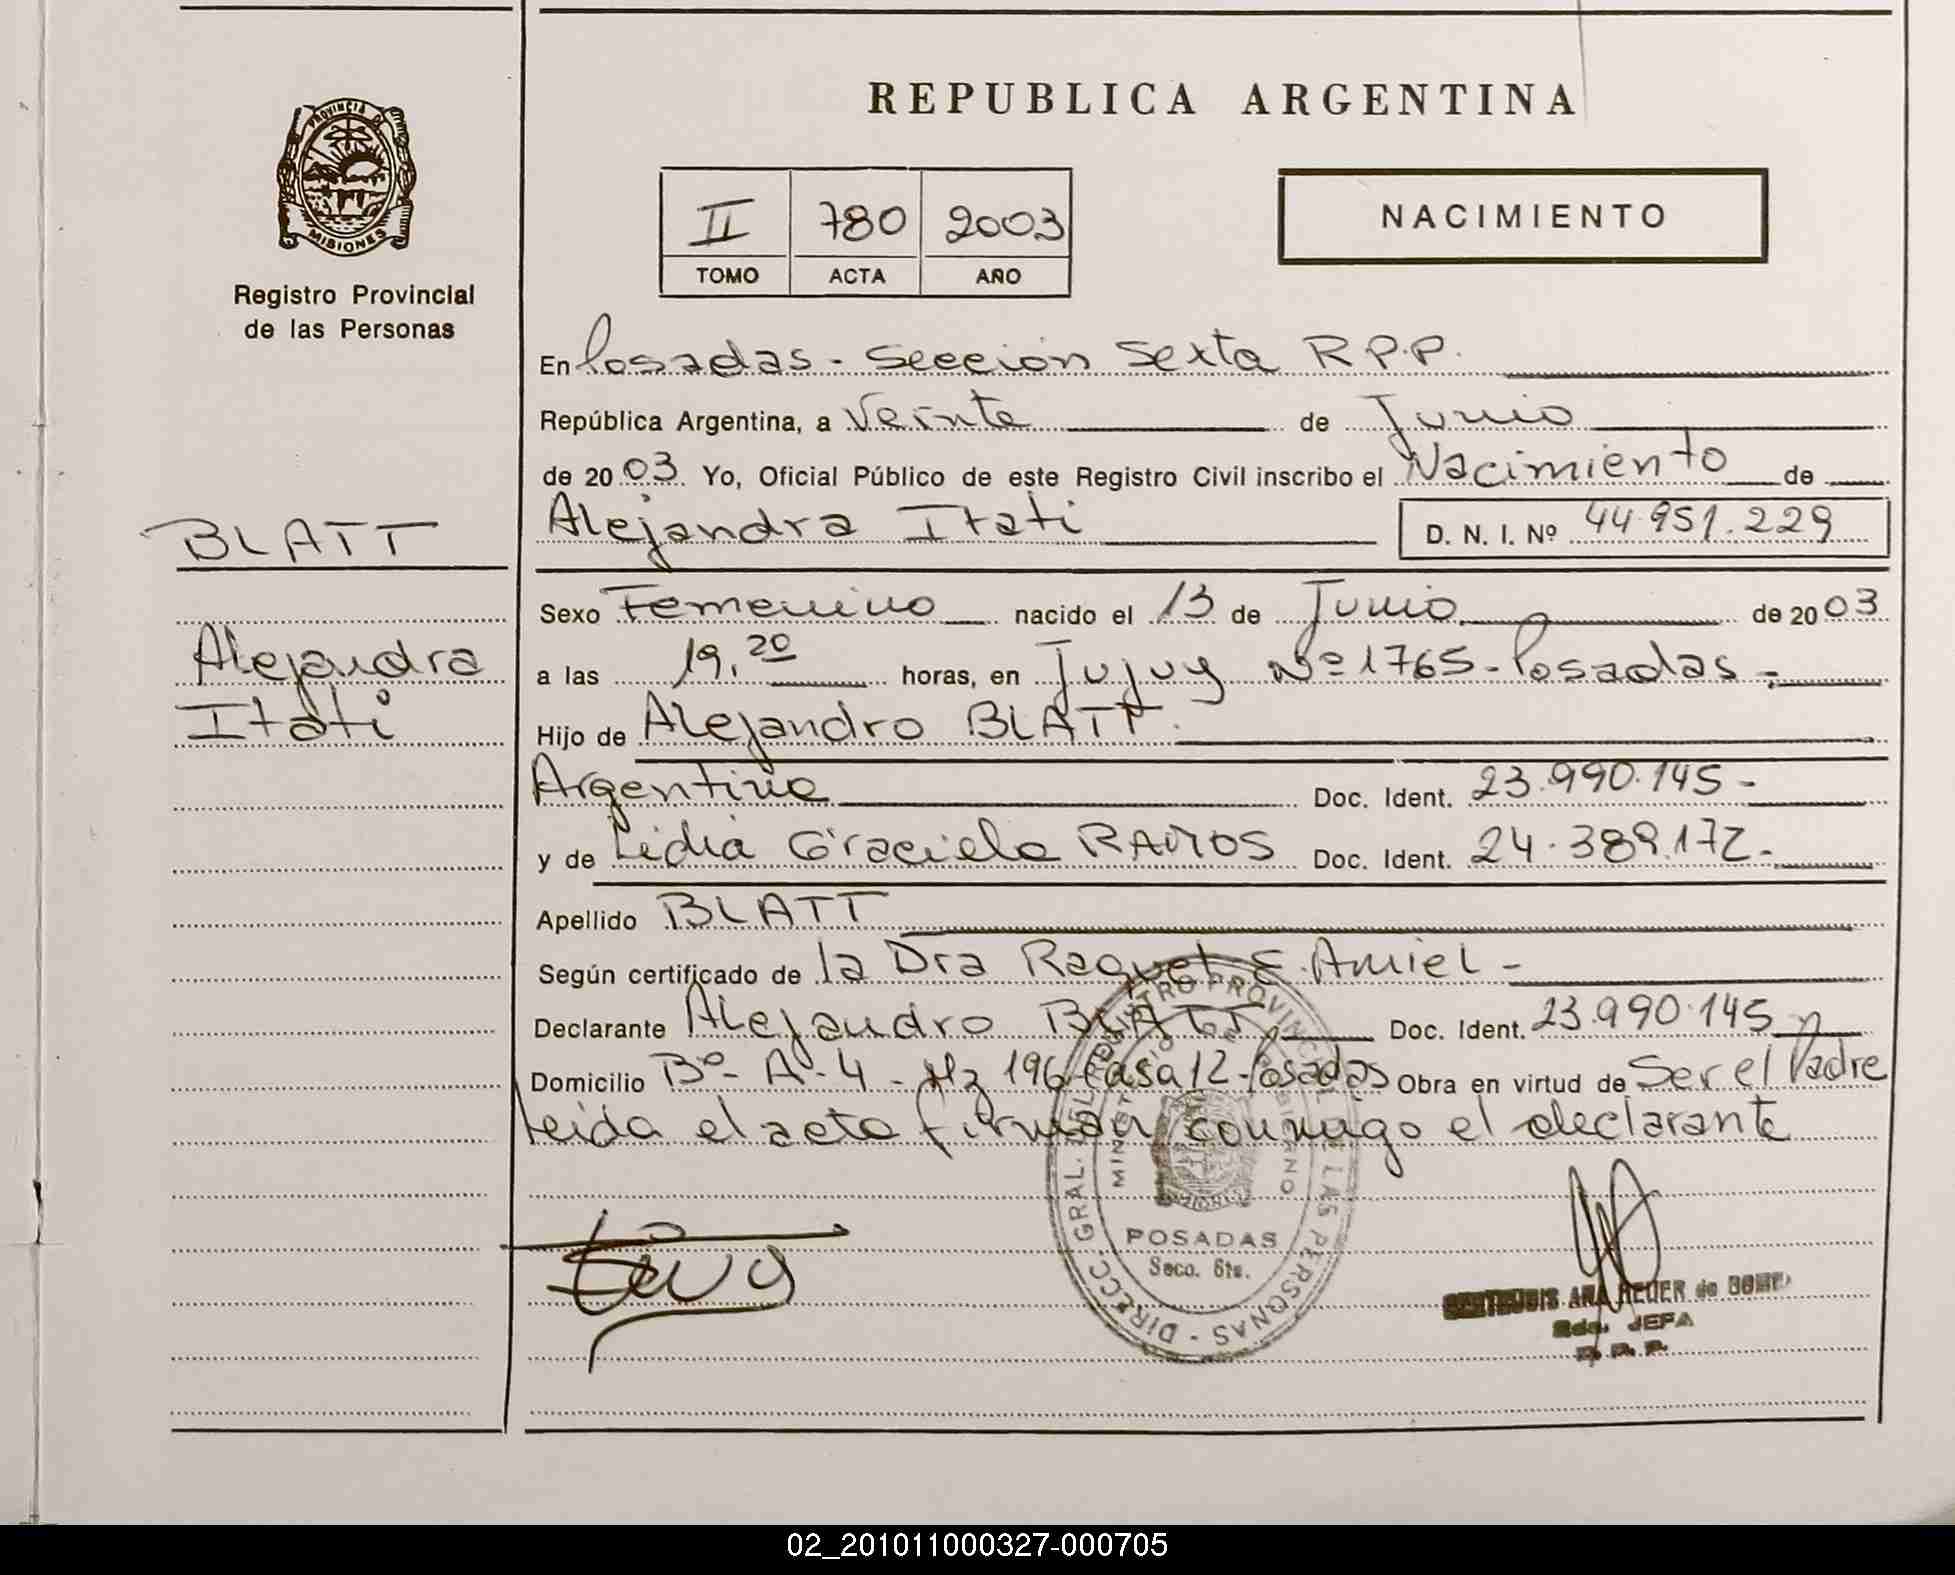 REPUBLICA ARGENTINA
PROVINCIA DE
MISIONES
Registro Provincial
de las Personas
II 780 2003
TOMO ACTA AÑO
NACIMIENTO
En Posadas - Sección Sexta R.P.P.
República Argentina, a Veinte de Junio
de 2003 Yo, Oficial Público de este Registro Civil inscribo el Nacimiento de
Alejandra Itati D. N. I. Nº 44.951.229
BLATT
Alejandra
Itati
Sexo Femenino nacido el 13 de Junio de 2003
a las 19,20 horas, en Jujuy Nº 1765 - Posadas -
Hijo de Alejandro BLATT.
Argentino Doc. Ident. 23.990.145 -
y de Lidia Graciela RAMOS Doc. Ident. 24.389.172 -
Apellido BLATT
Según certificado de la Dra Raquel E. Amiel -
Declarante Alejandro BLATT Doc. Ident. 23.990.145
Domicilio Bº - A - 4 - Mz 196 Casa 12 - Posadas Obra en virtud de Ser el Padre
Leida el acta firman conmigo el declarante
DIRECC. GRAL. DEL REGISTRO PROVINCIAL DE LAS PERSONAS
MINISTERIO DE GOBIERNO
MISIONES
POSADAS
Secc. 6ta.
ANA de
JEFA
R. P. P.
02_201011000327-000705